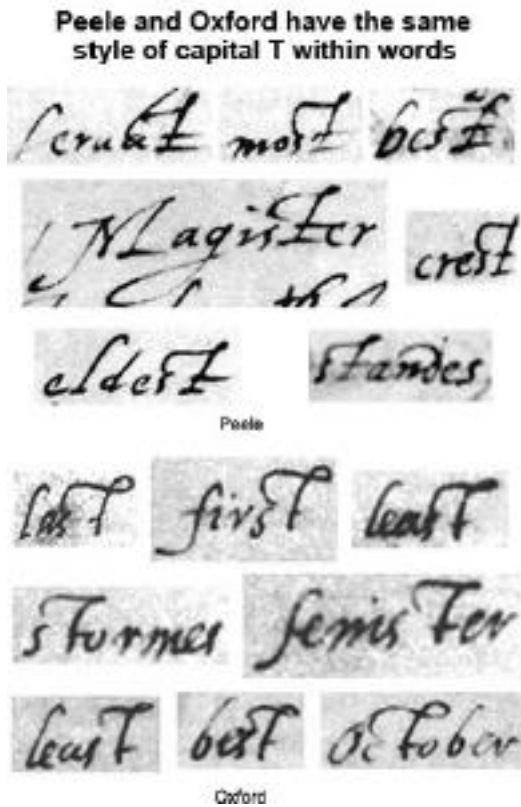 Peele and Oxford have the same
style of capital T within words
servaT mosT besT
MagisTer cresT
eldesT sTandes
Peele
lasT firsT leasT
sTormes fenisTer
leasT besT OcTober
Oxford